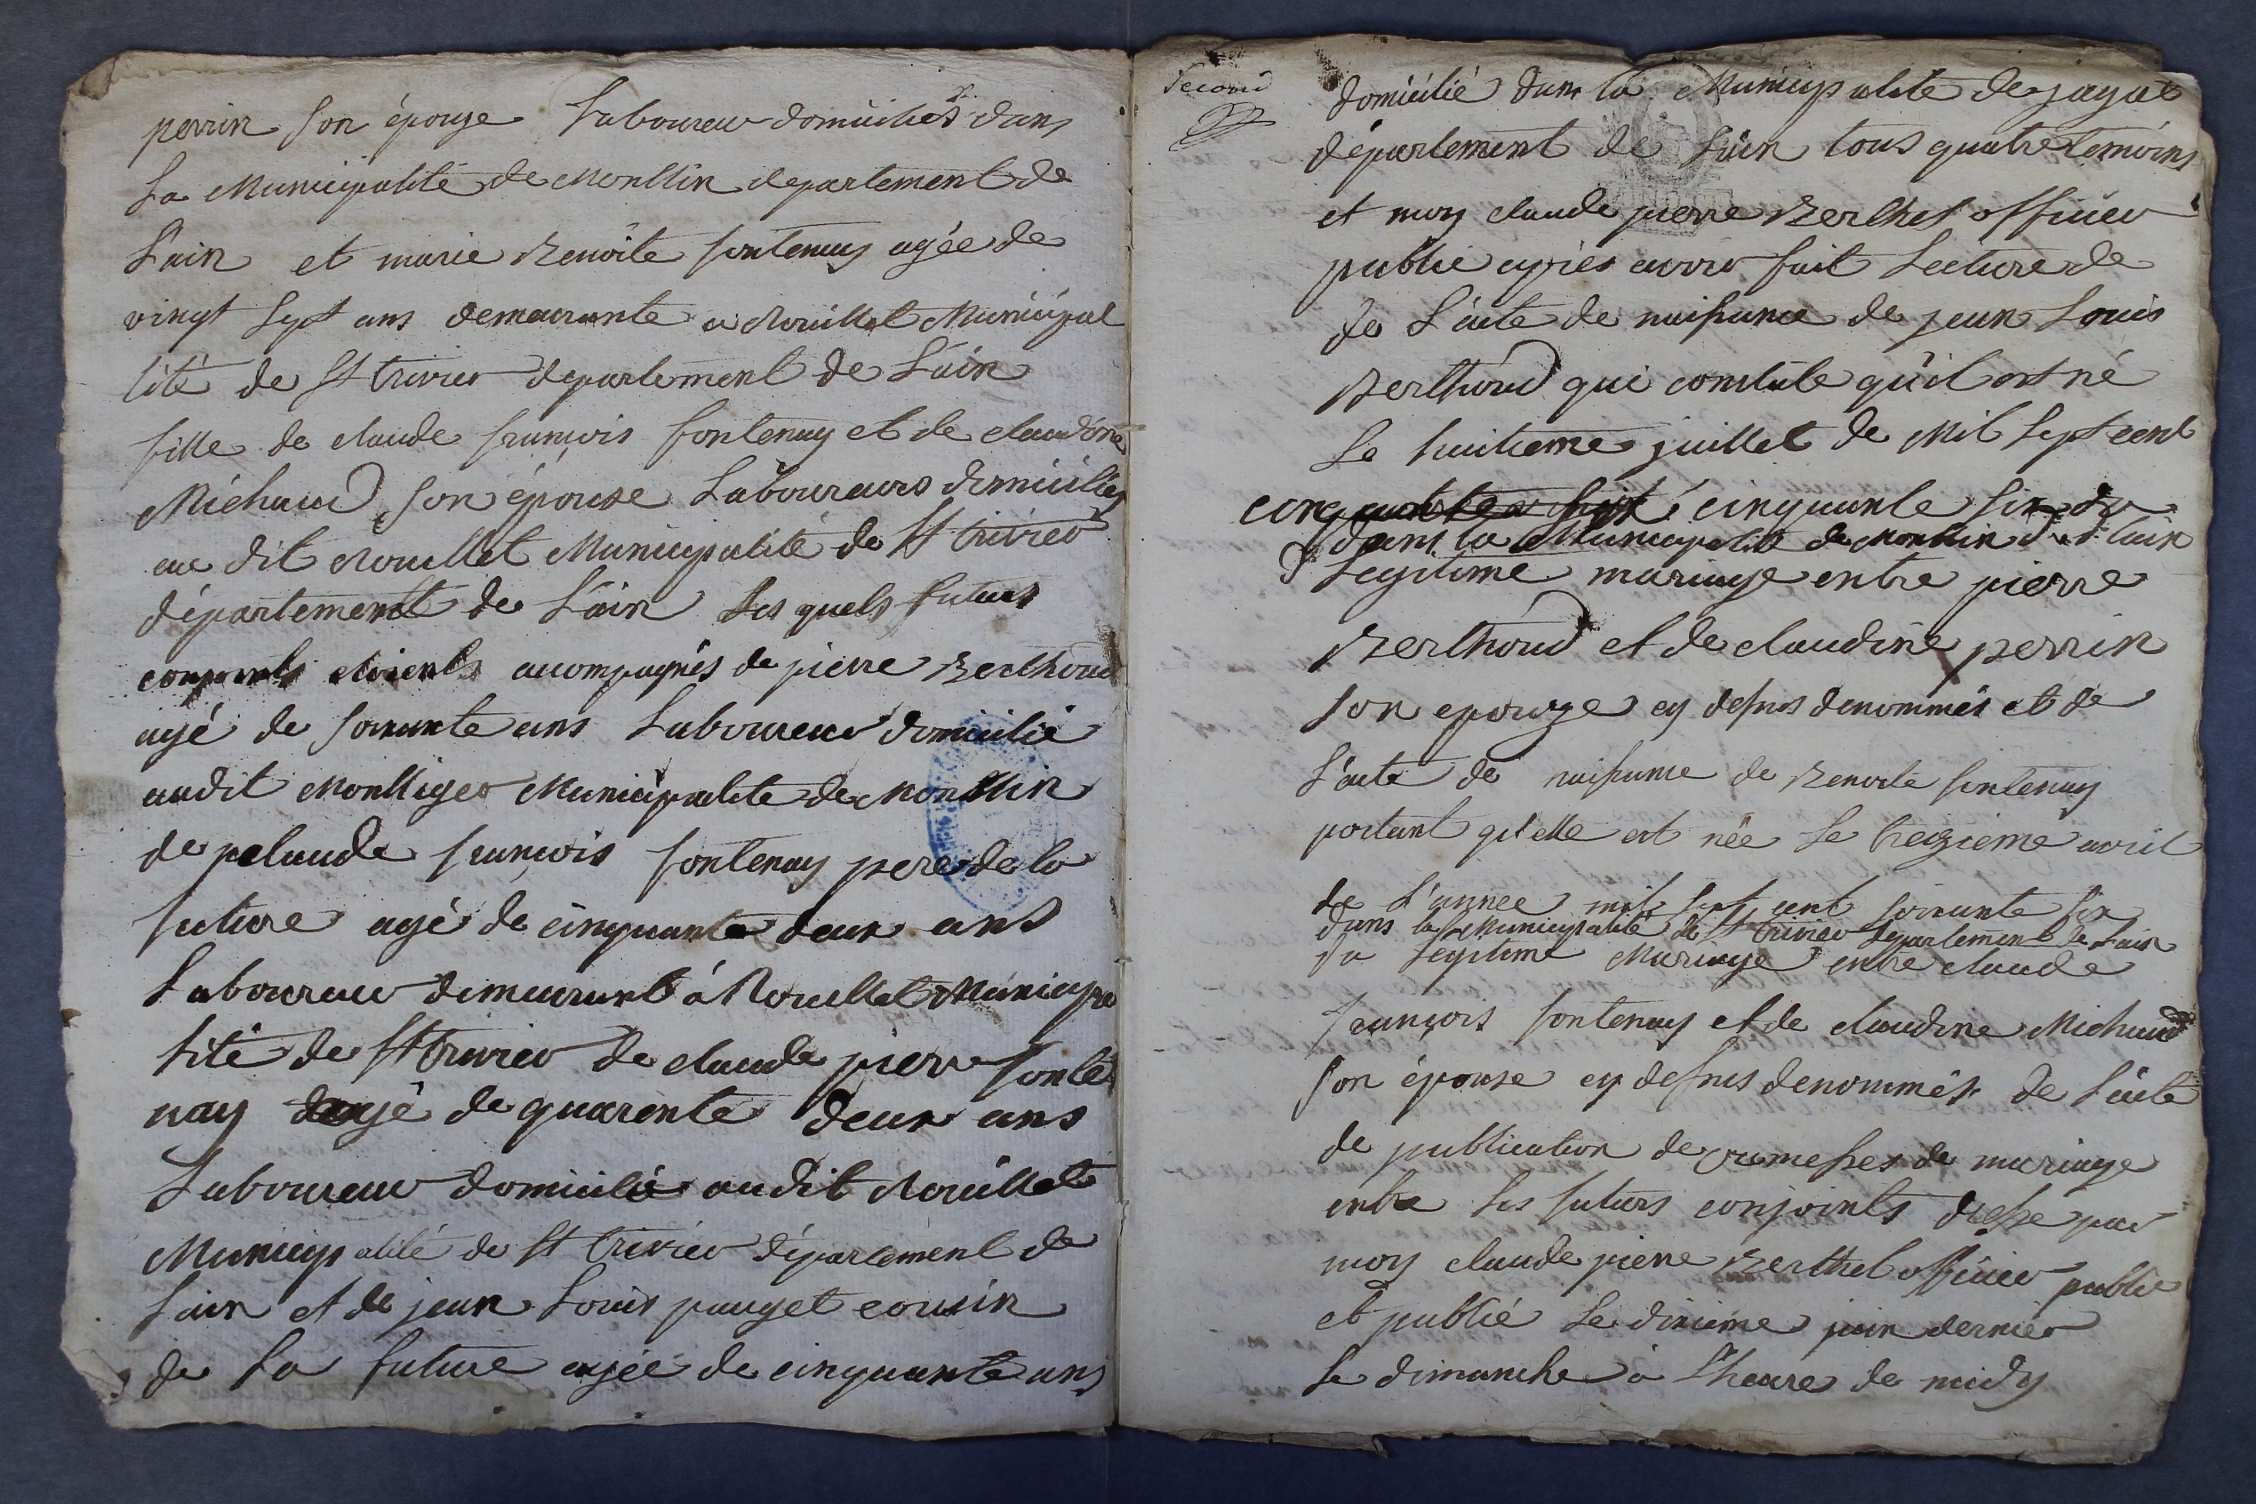 perrin son épouze Laboureur domiciliés dans
La Municipalité de Montlin departement de
L'ain et marie Benoite fontenay agée de
vingt Sept ans demeurante a Nouillet Municipal
lité de St trivier departement de L'ain
fille de claude françois fontenay et de claudine
Michaud son épouse Laboureurs domiciliés
au dit Nouillet Municipalité de St trivier
département de L'ain Les quels futurs
conjoints etoients accompagnés de pierre Berthoud
agé de soixante ans Laboureur domicilié
audit Montliger Municipalité de Montlin
de claude françois fontenay pere de la
future agé de cinquante deux ans
Laboureur demeurant á Nouillet Municipa
lité de St trivier de claude pierre fonte
nay agé de quarente deux ans
Laboureur domicilié audit Nouillet
Municipalité de St trivier département de
L'ain et de jean Louis pauget cousin
de La future agée de cinquante ans
Second
domicilié dans la Municipalité de jayat
département de L'ain tous quatre temoins
et moy claude pierre Berthet officier
public apries avoir fait Lecture de
de L'acte de naissance de jean Louis
Berthoud qui constate qu'il est né
Le huitieme juillet de Mil Sept cent
cinquante sept cinquante six du
dans la Municipalité de Montlin Dt. de L'ain
Legitime mariage entre pierre
Berthoud et de claudine perrin
son epouze cy dessus denommés et de
L'acte de naissance de Benoite fontenay
portant qu'elle est née Le treizieme avril
de L'annee mil sept cent soixante six
dans la Municipalité de St trivier departement de L'ain
du Legitime Mariage entre claude
françois fontenay et de claudine Michaud
son épouse cy dessus denommés de L'acte
de publication de promesses de mariage
entre Les futurs conjoints dressé par
moy claude pierre Berthet officier public
et publié Le dixième juin dernier
Le dimanche à L'heure de midy